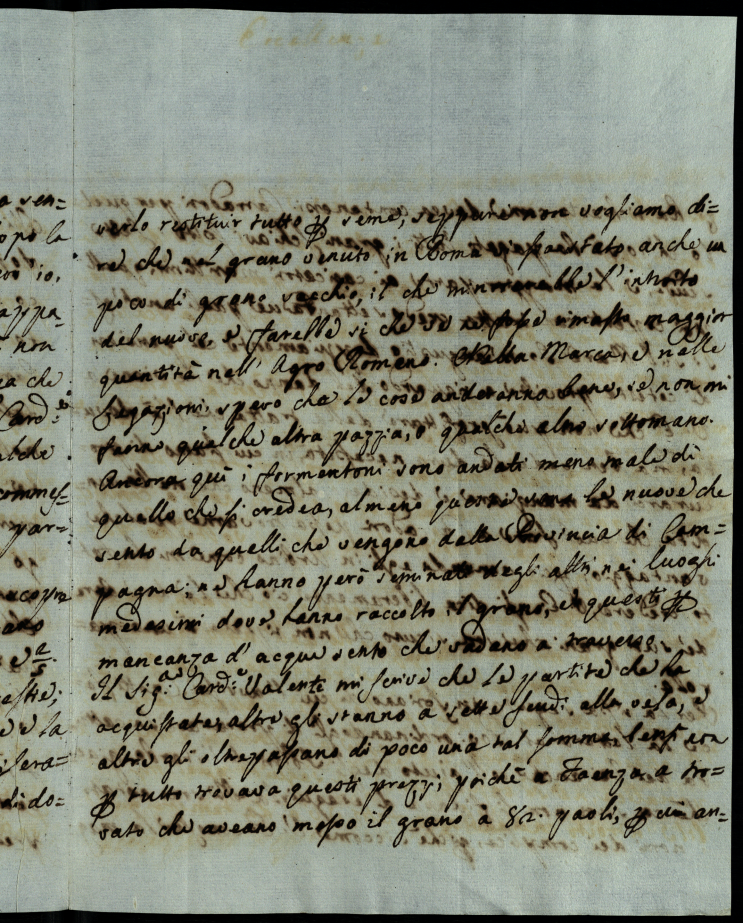 a ven=
opo la
io,
appa=
non
ea che
Card:
alche
commes=
par=
ano
e la
sera=
di do=
verlo restituir tutto p seme, seppure non vogliamo di=
re che nel grano venuto in Roma anche un
poco di grano vecchio, il che minorarebbe l'introito
del nuovo, e farebbe si che se ne fosse rimasta maggior
quantità nell'Agro Romano. Nella Marca, e nelle
Legazioni, spero che le cose anderanno bene, se non mi
fanno qualche altra pazzia, o qualche altro sottomano.
Ancora quì i formentoni sono andati meno male di
quello che si credea, almeno queste sono le nuove che
sento da quelli che vengono dalla Provincia di Cam=
pagna; ne hanno però seminato degli altri nei luoghi
medesimi dove hanno raccolto il grano, e questi p
mancanza d'acqua sento che vadano a traverso.
Il Sig.r Card.e Valenti mi scrive che le partite che ha
acquistate, altre gli stanno a sette scudi alla , e
altre gli oltrapassano di poco una tal somma, non
p tutto trovava questi prezzi, poichè a Faenza a tro=
vato che aveano messo il grano à 82. paoli, p cui an=